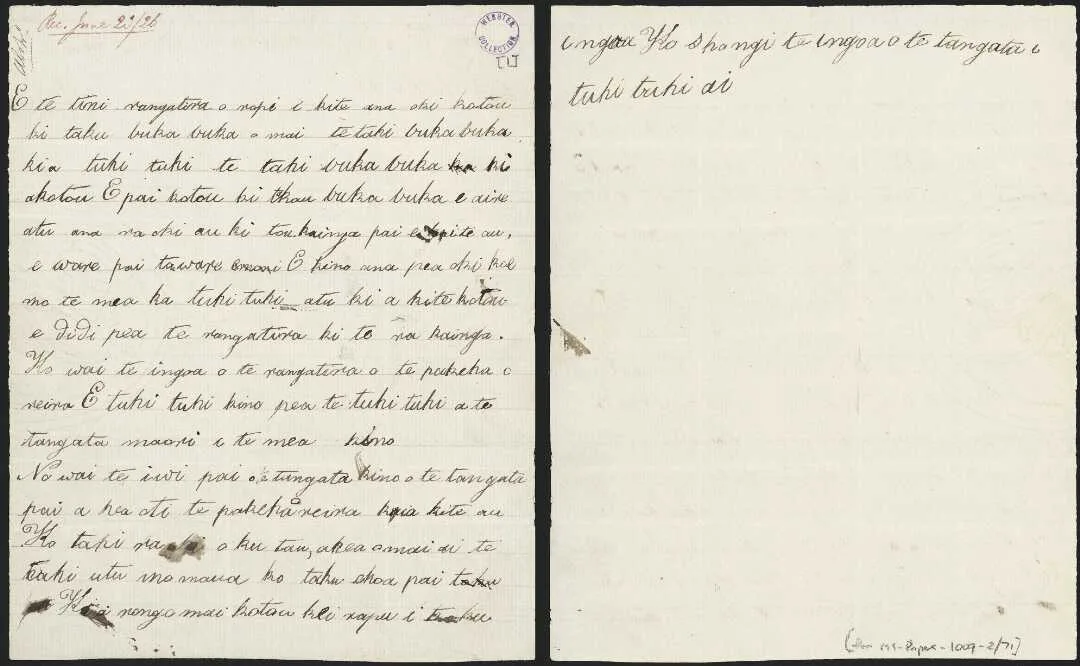 Rec. June 22/26
WEBSTER
COLLECTION
E te tini rangatira o ropi i kite ana oki kotou
ki taku buka buka o mai te taki buka buka
kia tuki tuki te taki buka buka ka ki
akotou E pai kotou ki tkau buka buka e aire
atu ana ra oki au ki toukainga pai e kite au,
e ware pai ta ware E kino ana pea oki koe
no te mea ka tuki tuki atu ki a kite kotou
e didi pea te rangatira ki te ra kainga.
Ko wai te ingoa o te rangatira o te pakeha o
reira E tuki tuki kino pea te tuki tuki a te
tangata maori i te mea kino
No wai te iwi pai o te tungata kino o te tangata
pai a hea oti te pakeha reira kia kite au
Ko taki ra o ku tau, akea omai ai te
taki utu mo maua ko taku ekoa pai taku
Kia rongo mai kotou kei rapu i taku
ingoa Ko shongi te ingoa o te tangata i
tuki tuki ai
MS-Papers-1009-2/71]